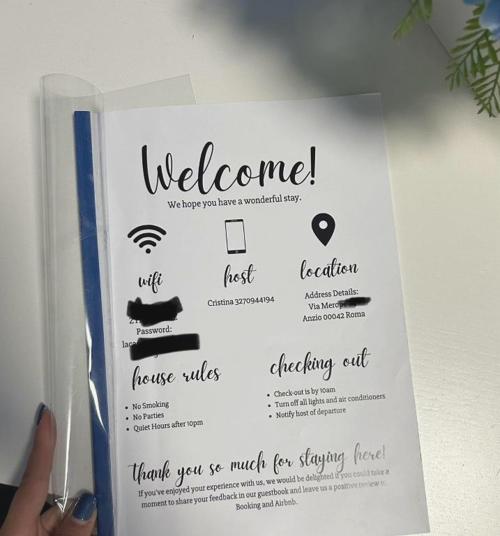 Welcome!
We hope you have a wonderful stay.
wifi
host
location
Password:
Cristina 3270944194
Address Details:
Via
Anzio 00042 Roma
house rules
• No Smoking
• No Parties
• Quiet Hours after 10pm
checking out
• Check-out is by 10am
• Turn off all lights and air conditioners
• Notify host of departure
thank you so much for staying here!
If you've enjoyed your experience with us, we would be delighted if you could take a
moment to share your feedback in our guestbook and leave us a positive review on
Booking and Airbnb.